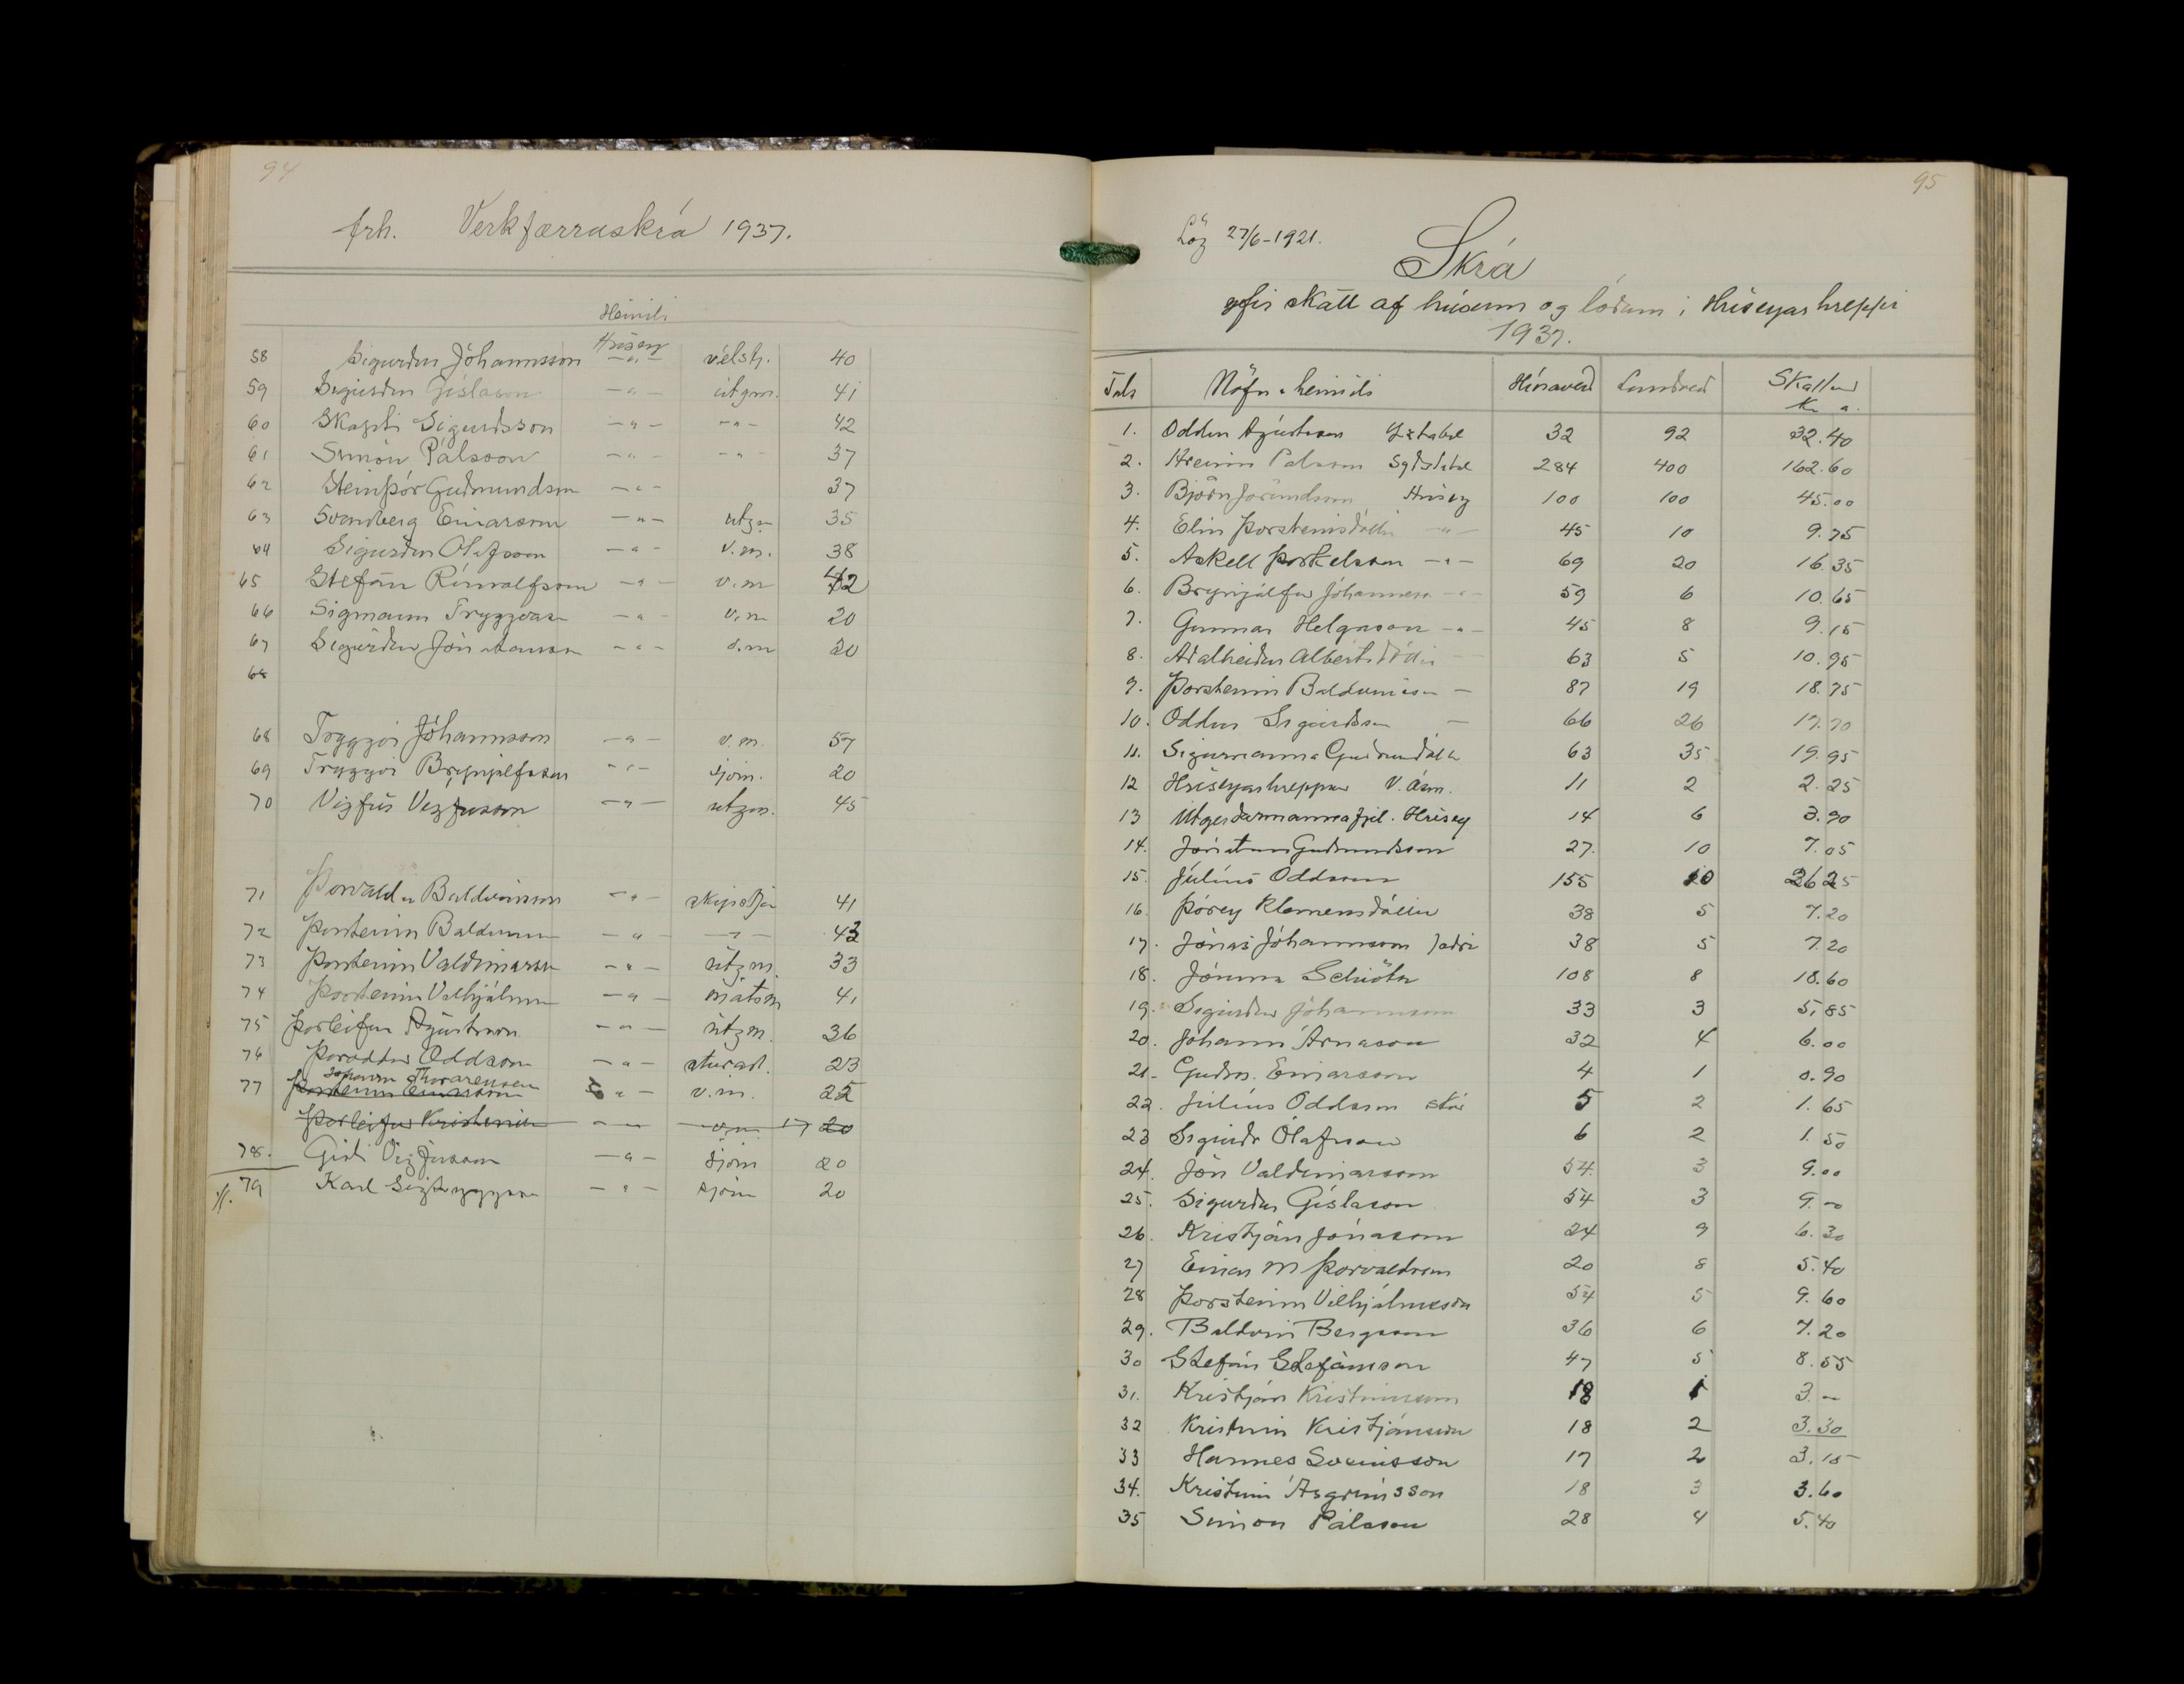 94
frh. Verkfærraskrá 1937.
Heimili
Hrísey
58 Sigurður Jóhannsson -"- vélstj. 40
59 Sigurður Gíslason -"- útgm. 41
60 Skapti Sigurðsson -"- -"- 42
61 Símon Pálsson -"- -"- 37
62 Steinþór Guðmundsson -"- 37
63 Svanberg Einarsson -"- útgm 35
64 Sigurður Ólafsson -"- v.m. 38
65 Stefán -"- v.m 42
66 Sigmann Tryggvason -"- v.m 20
67 Sigurður -"- v.m 20
68
68 Tryggvi Jóhannsson -"- v.m. 57
69 Tryggvi Brynjólfsson -"- sjóm. 20
70 Vigfús Vigfússon -"- útgm. 45
71 Þorvaldur Baldvinsson -"- skipstjór 41
72 Þorsteinn Baldvinsson -"- -"- 43
73 Þorsteinn Valdimarsson -"- útgm. 33
74 Þorsteinn Vilhjálmsson -"- mátsm 41
75 Þorleifur Ágústsson -"- útgm. 36
76 Þoroddur Oddsson -"- 23
Jóhann Thorarensen
77 Þorsteinn Einarsson -"- v.m. 25
Þorleifur Kristinn -"- v.m 17 20
78. Gísli Vigfússon -"- sjóm 20
79 Karl Sigtryggsson -"- sjóm 20
95
Lög 27/6-1921.
Skrá
yfir skatt af húsum og lóðum í Hríseyarhreppi
1937.
Tals Nöfn & heimili Húsaverð Landverð Skattur
Kr. a.
1. Oddur Ágústsson Yztabæ 32 92 32.40
2. Hreinn Pálsson Sydstabæ 284 400 162.60
3. Björn Jörundsson Hrísey 100 100 45.00
4. Elin Þorsteinsdóttir -"- 45 10 9.75
5. Askell Þorkelsson -"- 69 20 16.35
6. Brynjólfur Jóhannesson -"- 59 6 10.65
7. Gunnar Helgason -"- 45 8 9.15
8. Aðalheiður Albertsdóttir - 63 5 10.95
9. Þorsteinn Baldvinsson - 87 19 18.75
10. Oddur Sigurðsson - 66 26 17.70
11. Sigurmanna Guðmundsdóttir 63 35 19.95
12 Hríseyarhreppur V. Ásm. 11 2 2.25
13 Útgerðarmannafjel. Hrísey 14 6 3.90
14. Jónatan Guðmundsson 27. 10 7.05
15. Júlíus Oddsson 155 10 26 25
16. Þórey Klemensdóttir 38 5 7.20
17. Jónas Jóhannsson 38 5 7.20
18. Jónína Schiöth 108 8 18.60
19. Sigurður Jóhannsson 33 3 5,85
20. Jóhann Árnason 32 4 6.00
21- Guðm. Einarsson 4 1 0.90
22. Júlíus Oddsson 5 2 1.65
23 Sigurðr Ólafsson 6 2 1.50
24. Jón Valdimarsson 54. 3 9.00
25. Sigurður Gíslason 54 3 9.-
26. Kristján Jónasson 24 9 6.30
27 Einar M Þorvaldsson 20 8 5.40
28 Þorsteinn Vilhjálmsson 54 5 9.60
29. Baldvin Bergsson 36 6 7.20
30 Stefán Stefánsson 47 5 8.55
31. Kristján Kristinsson 18 1 3.-
32 Kristinn Kristjánsson 18 2 3.30
33 Hannes Sveinsson 17 2 3.15
34. Kristinn Ásgrímsson 18 3 3.60
35 Símon Pálsson 28 4 5.40